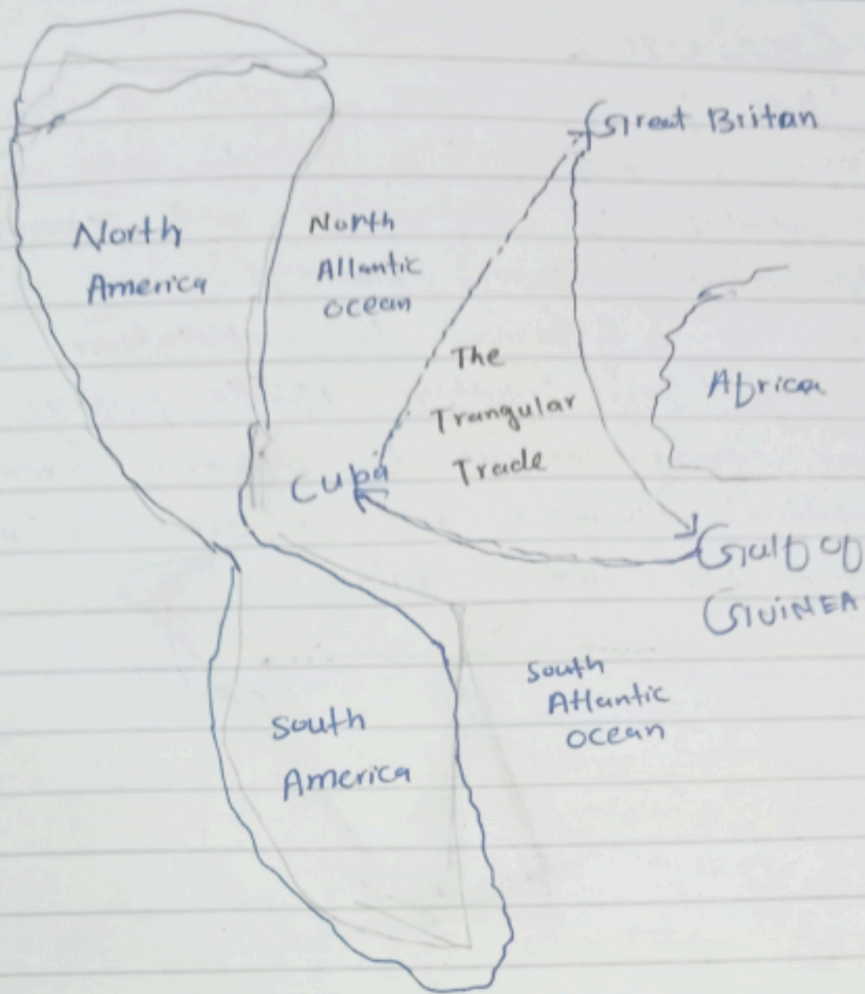 Great Britan
North
America
North
Allantic
ocean
The
Trangular
Trade
Africa
Cuba
Gulf of
GUINEA
South
America
South
Atlantic
ocean